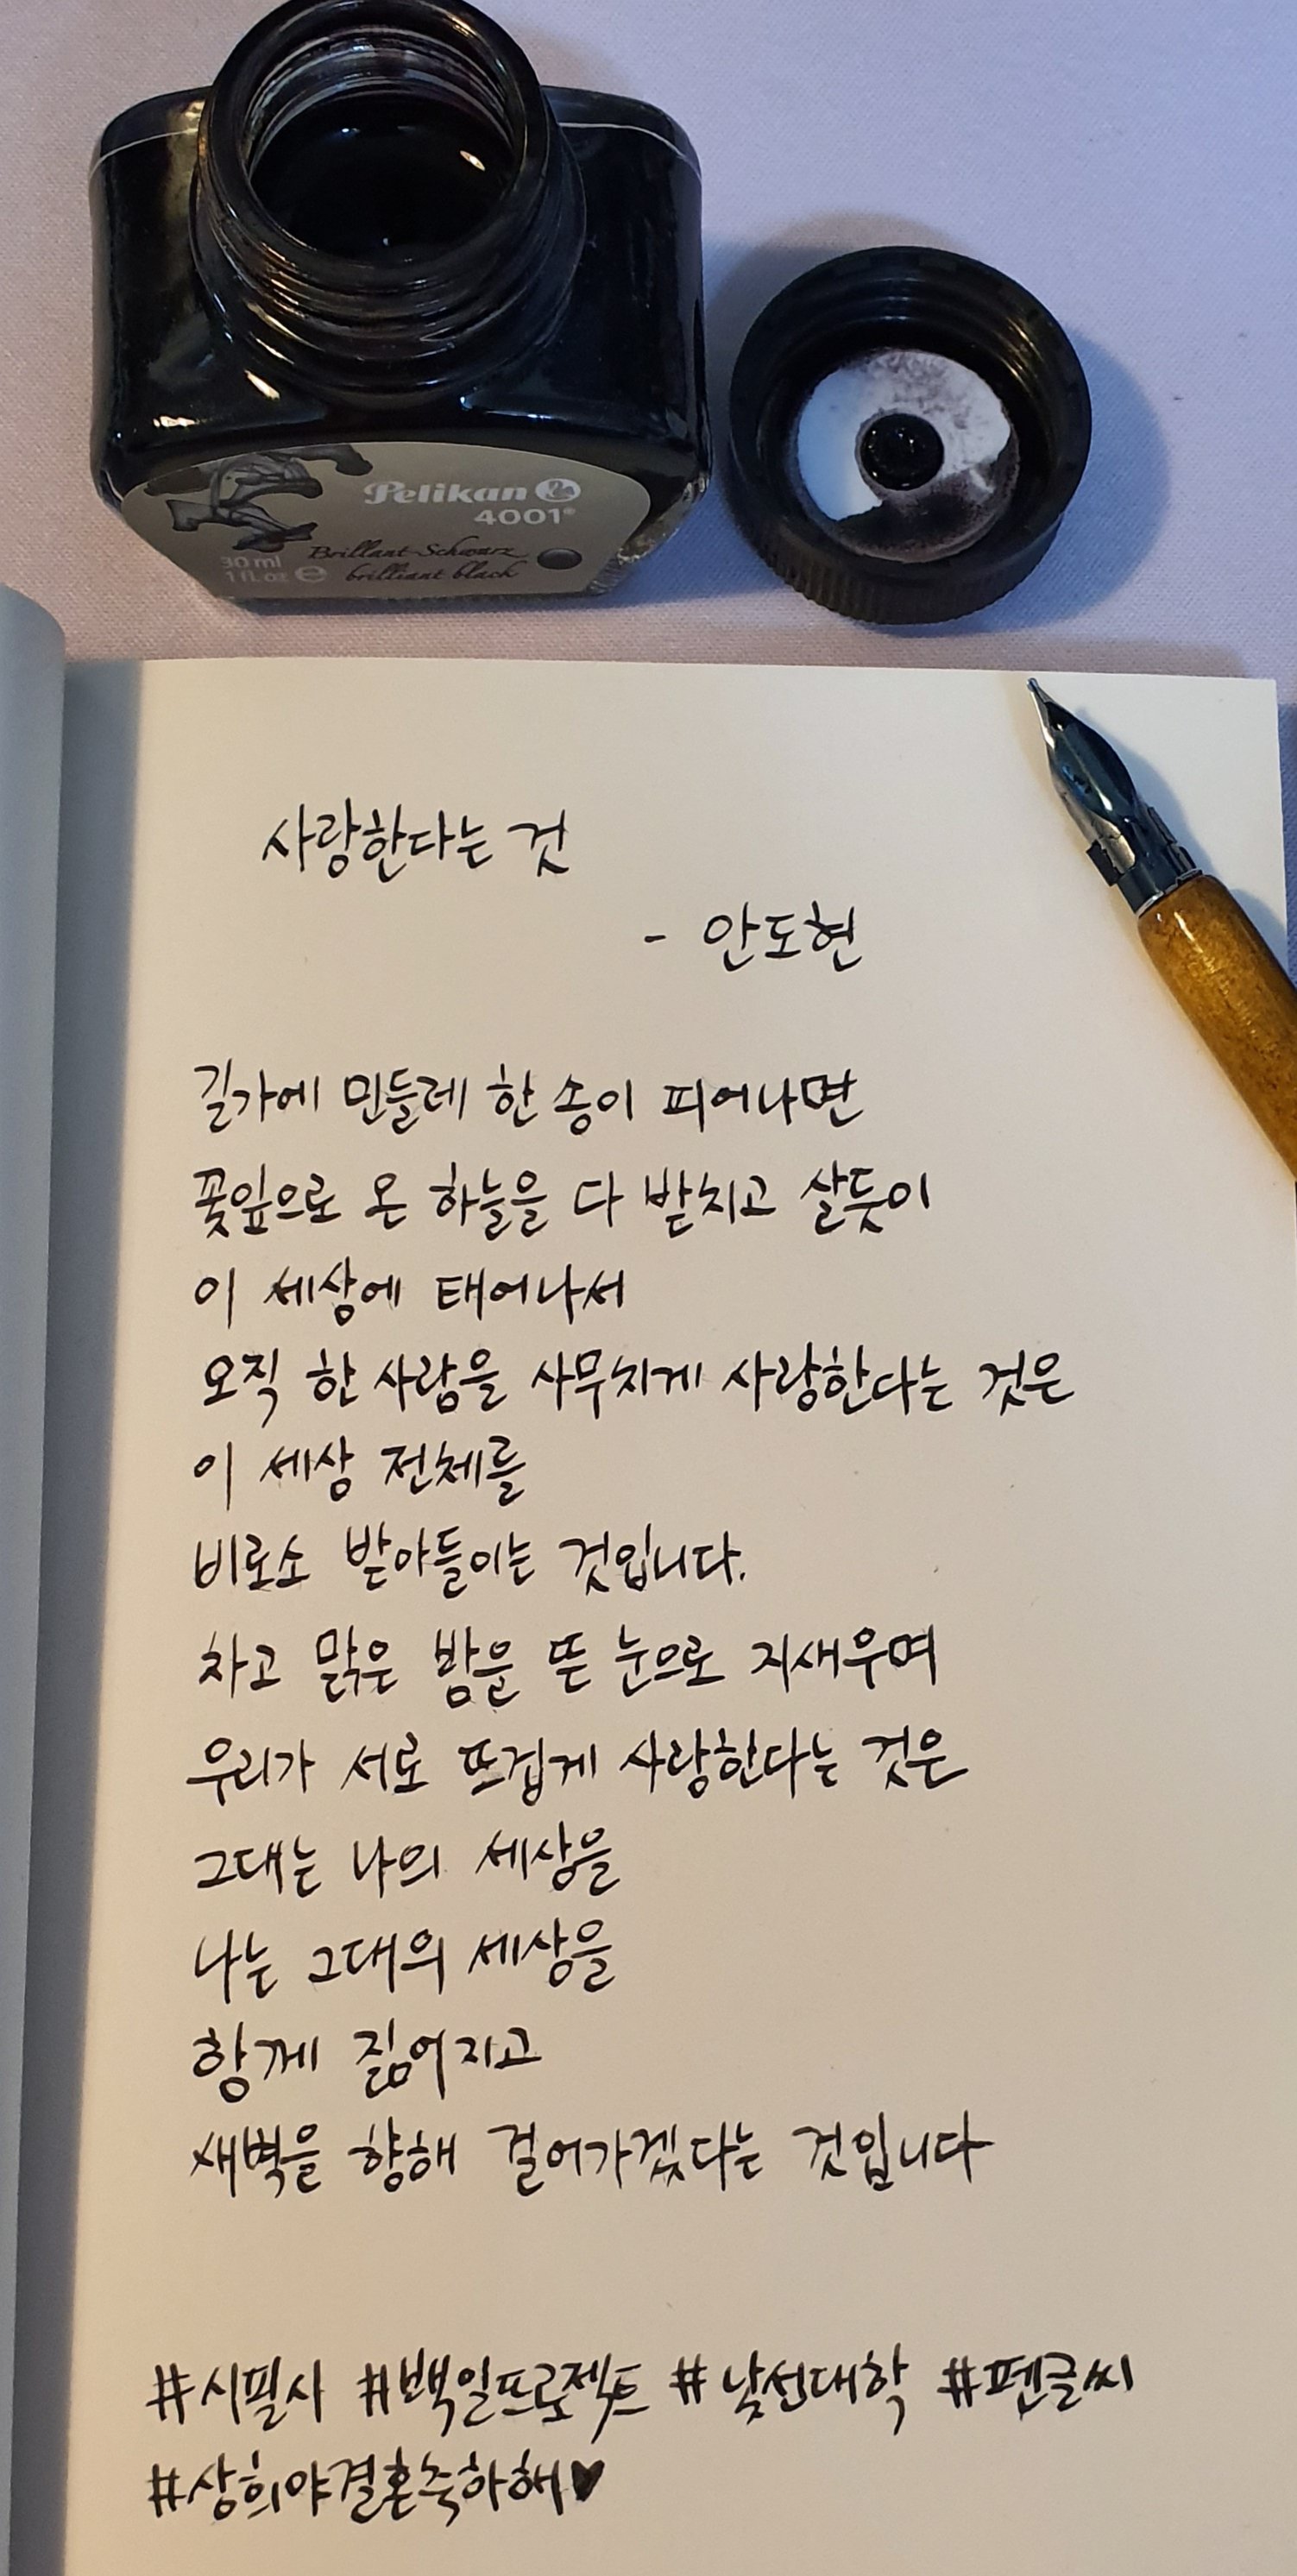 Pelikan
4001®
Brillant-Schwarz
30 ml
1 fl.oz e brilliant black
사랑한다는 것
- 안도현
길가에 민들레 한 송이 피어나면
꽃잎으로 온 하늘을 다 받치고 살듯이
이 세상에 태어나서
오직 한 사람을 사무치게 사랑한다는 것은
이 세상 전체를
비로소 받아들이는 것입니다.
차고 맑은 밤을 뜬 눈으로 지새우며
우리가 서로 뜨겁게 사랑한다는 것은
그대는 나의 세상을
나는 그대의 세상을
함께 짊어지고
새벽을 향해 걸어가겠다는 것입니다
#시필사 #백일프로젝트 #낯선대학 #펜글씨
#상희야결혼축하해♥